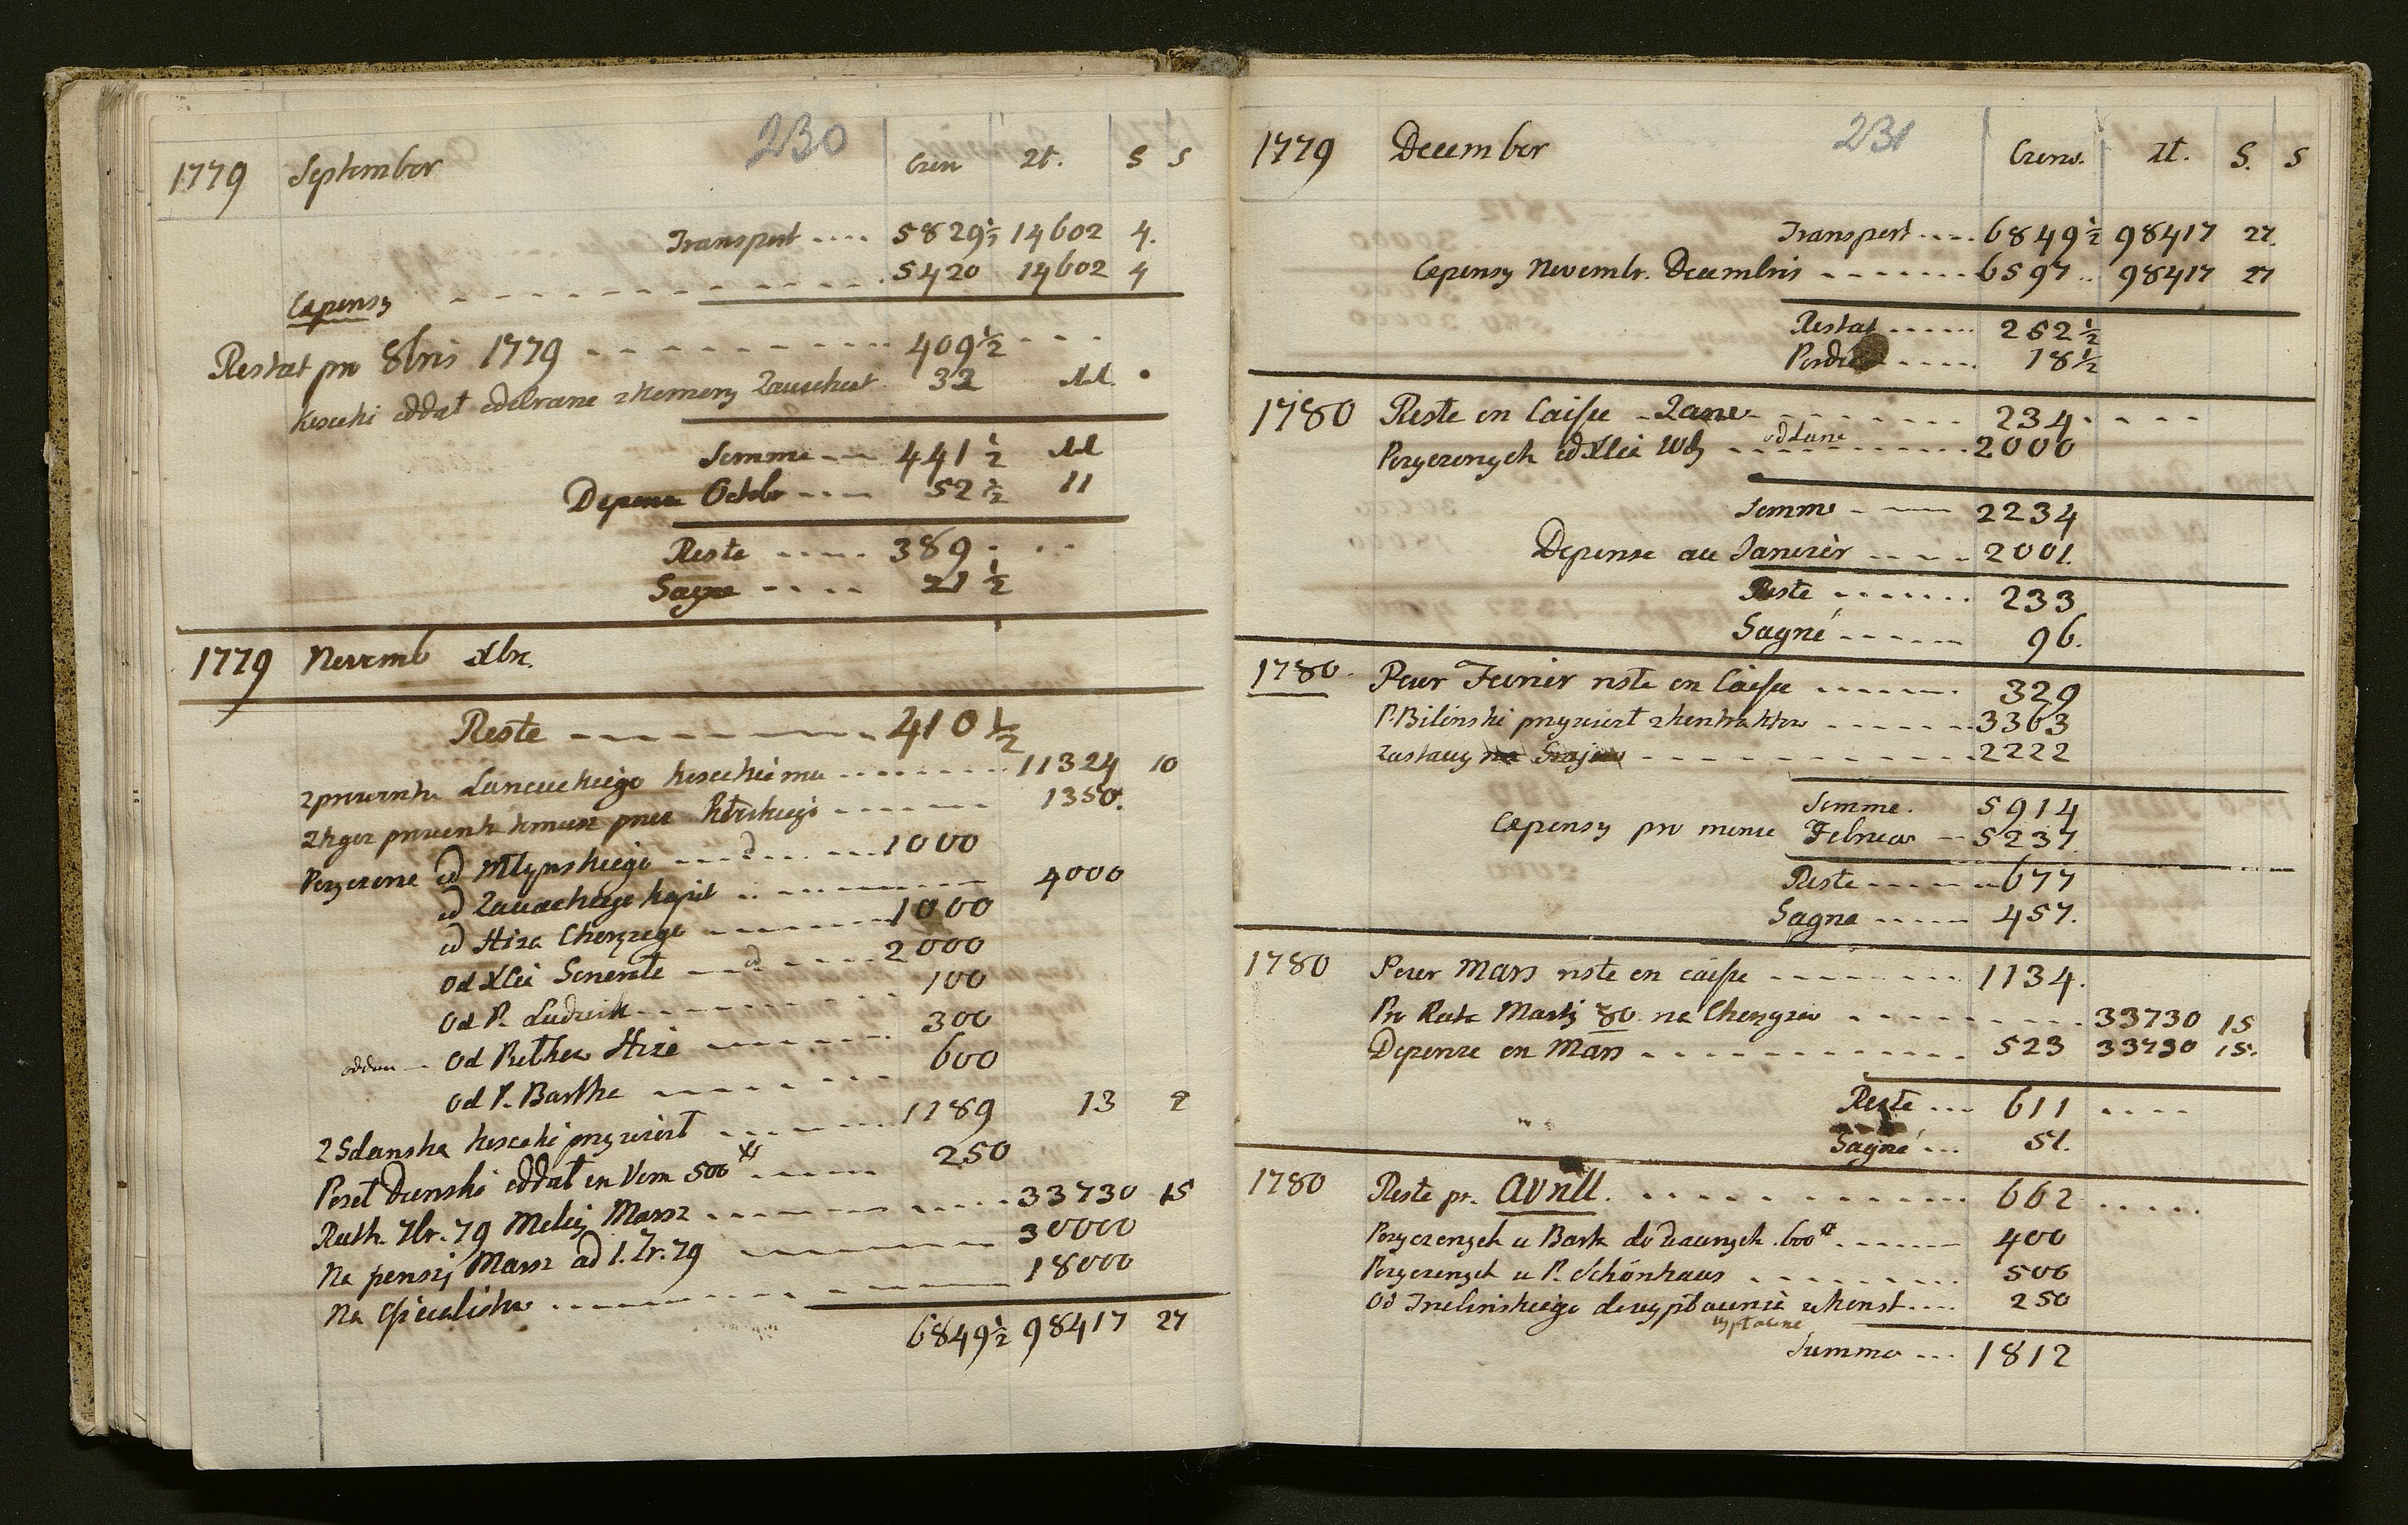 230
1779 September Czen zt. S S
Transport .... 5829½ 14602 4.
Expensy 5420 14602 4
Restat pro 8bris 1779 409½
Kosecki oddał odebrane z 32 11.
Somme 441½ 11
Depense Octobr 52½ 11
Reste 389
Gagne 21½
1779 Novemb Xbr.
Reste 410½
z prowentu Lancuckiego Koseckiemu 11324 10
1350.
Pozyczone od Młynskiego 1000
od kapit 4000
od Hiza Chorązego 1000
Od Xcia Generałe 2000
Od P. Ludwik 100
oddan Od Hize 300
od P. Barthe 600
z Gdanska Kosecki przywiozł 1189 13 2
Poset Dunski oddał en Vom 500# 250
Rath. 7br. 79 Massz 33730 15
Na pensij Massz ad 1. 79 30000
Na 18000
6849½ 98417 27
231
1779 December Czerw. zł. S. S
Transport .... 6849½ 98417 27.
Expensy Novembr. Decembris 6597 98417 27
Restat 252½
Perdu 18½
1780 Reste en Caisse Jane 234
Pozyczonych od Xcia Wdy oddane 2000
Somme 2234
Depense au Janvièr 2001.
Reste 233
Gagné 96.
1780. Pour Fevrier reste en Caisse 329
P. Bilinski przywiozł z kontraktow 3363
Zastawy na 2222
Somme. 5914
Expensy pro mense Februar 5237.
Reste 677
Gagne 457.
1780 Pour Mars reste en caisse 1134.
Pro Rata Martij 80. na Chorązew 33730 15
Depense en Mars 523 33730 15.
Reste ... 611
Gagné ... 51.
1780 Reste pr. Avrill. 662
Pozyczonych u Bark do dawnych 600# 400
Pozyczonych u P. Schönhaus 500
Od do wypłacenia z 250
wypłacone
Summa ... 1812